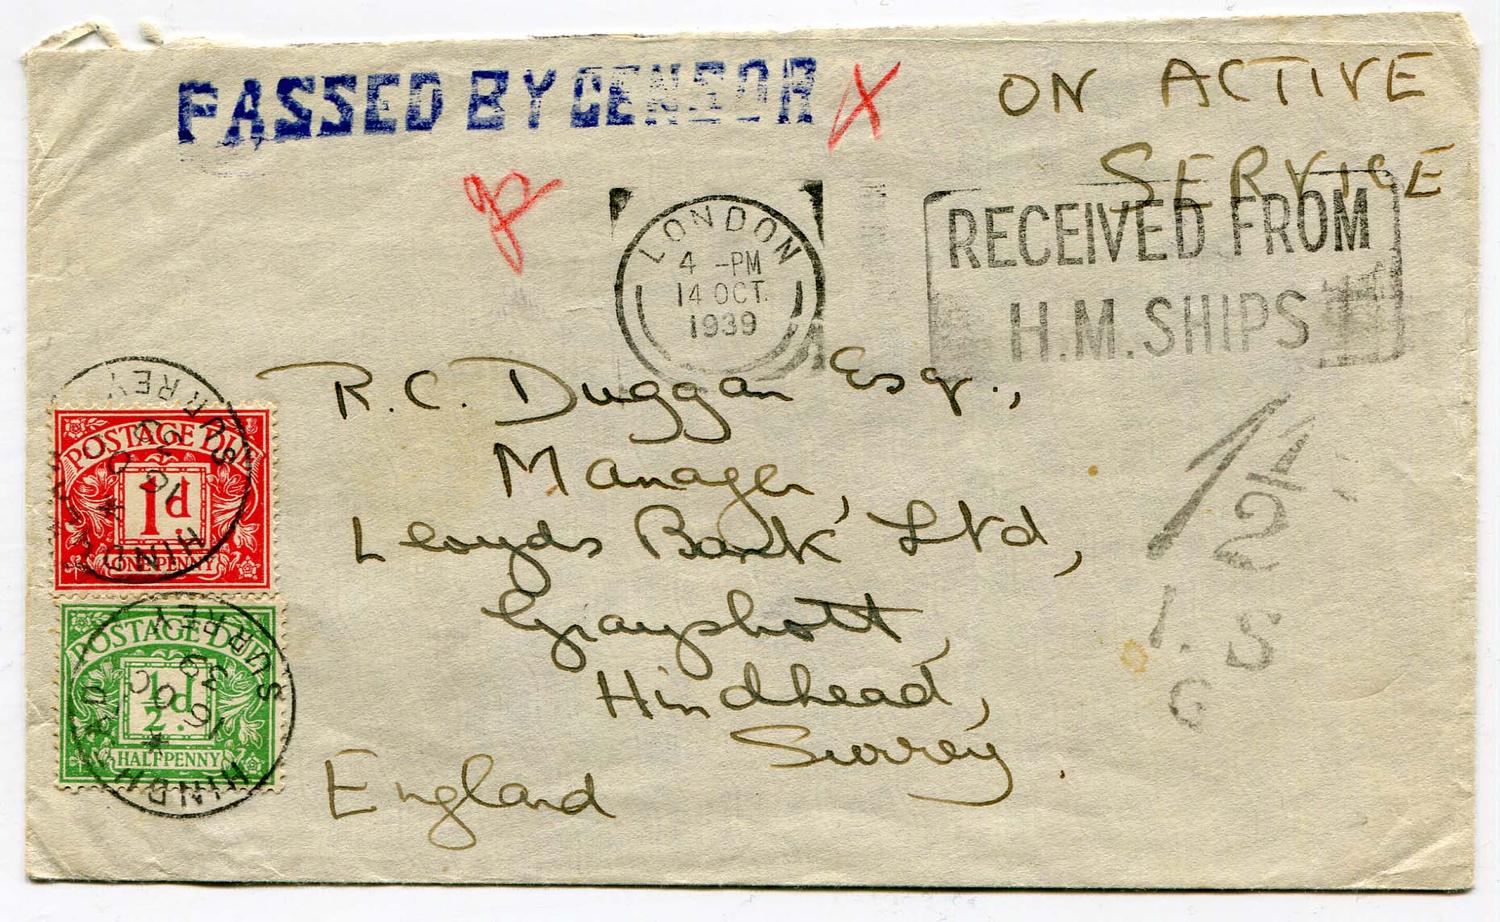 PASSED BY CENSOR
ON ACTIVE
SERVICE
LONDON
4 - PM
14 OCT.
1939
RECEIVED FROM
H.M. SHIPS
R.C. Duggan Esq.,
Manager,
Lloyds Bank Ltd,
Grayshott,
Hindhead,
Surrey.
England
1½
I.S
G
POSTAGE DUE
1d
ONE PENNY
HINDHEAD
16 OC
39
SURREY
POSTAGE DUE
½d
HALFPENNY
HINDHEAD
16 OC
39
SURREY